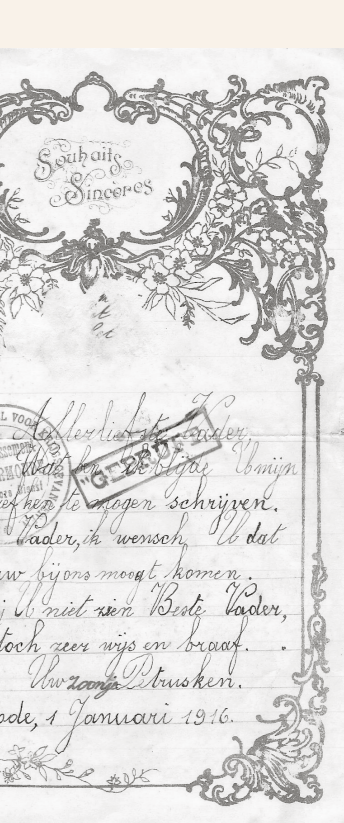 Souhaits
Sincères
Allerliefste Vader,
Wat ben ik blijde U mijn
te mogen schrijven.
"GEPRÜFT"
Vader, ik wensch U dat
bij ons moogt komen.
U niet zien Beste Vader,
toch zeer wijs en braaf.
Uw zoontje Petrusken.
ode, 1 Januari 1916.